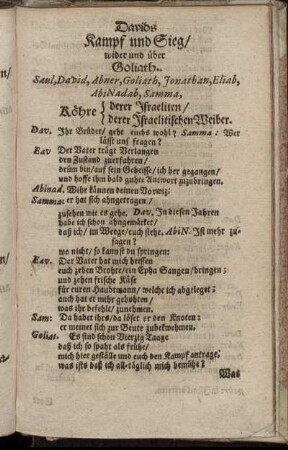 Davids
Kampf und Sieg/
wider und über
Goliath.
Saul, David, Abner, Goliath, Jonathan, Eliab,
AbiNadab, Samma,
Köhre { derer Israeliten/
derer Israelitischen Weiber.
Dav. Ihr Brüder/ geht euchs wohl? Samma: Wer
lässt uns fragen?
Eav Der Vater trägt Verlangen
den Zustand zuerfahren/
drüm bin/ auf sein Geheisse/ ich her gegangen/
und hoffe ihm bald guhte Antwort zuzubringen.
Abinad. Wihr kännen deinen Vorwiz:
Samma: er hat sich ahngetragen/
zusehen wie es gehe. Dav. In diesen Jahren
habe ich schon ahngemärket/
daß ich/ im Weege/ euch stehe. AbiN. Ist mehr zu-
sagen?
wo nicht/ so kannst du springen:
Eav. Der Vater hat mich heissen
euch zehen Brohte/ ein Epha Sangen/ bringen;
und zehen frische Käse
für euren Haubtmann/ welche ich abgeleget:
auch hat er mihr gebohten/
was ihr befehlt/ zunehmen.
Sam: Da habet ihrs/ da löset er den Knoten:
er meinet sich zur Beute zubekwehmen.
Goliat. Es sind schon Vierzig Taage
daß ich so spaht als frühe/
mich hier geställe und euch den Kampf antrage.
was ists daß ich all-täglich mich bemühe?
Was